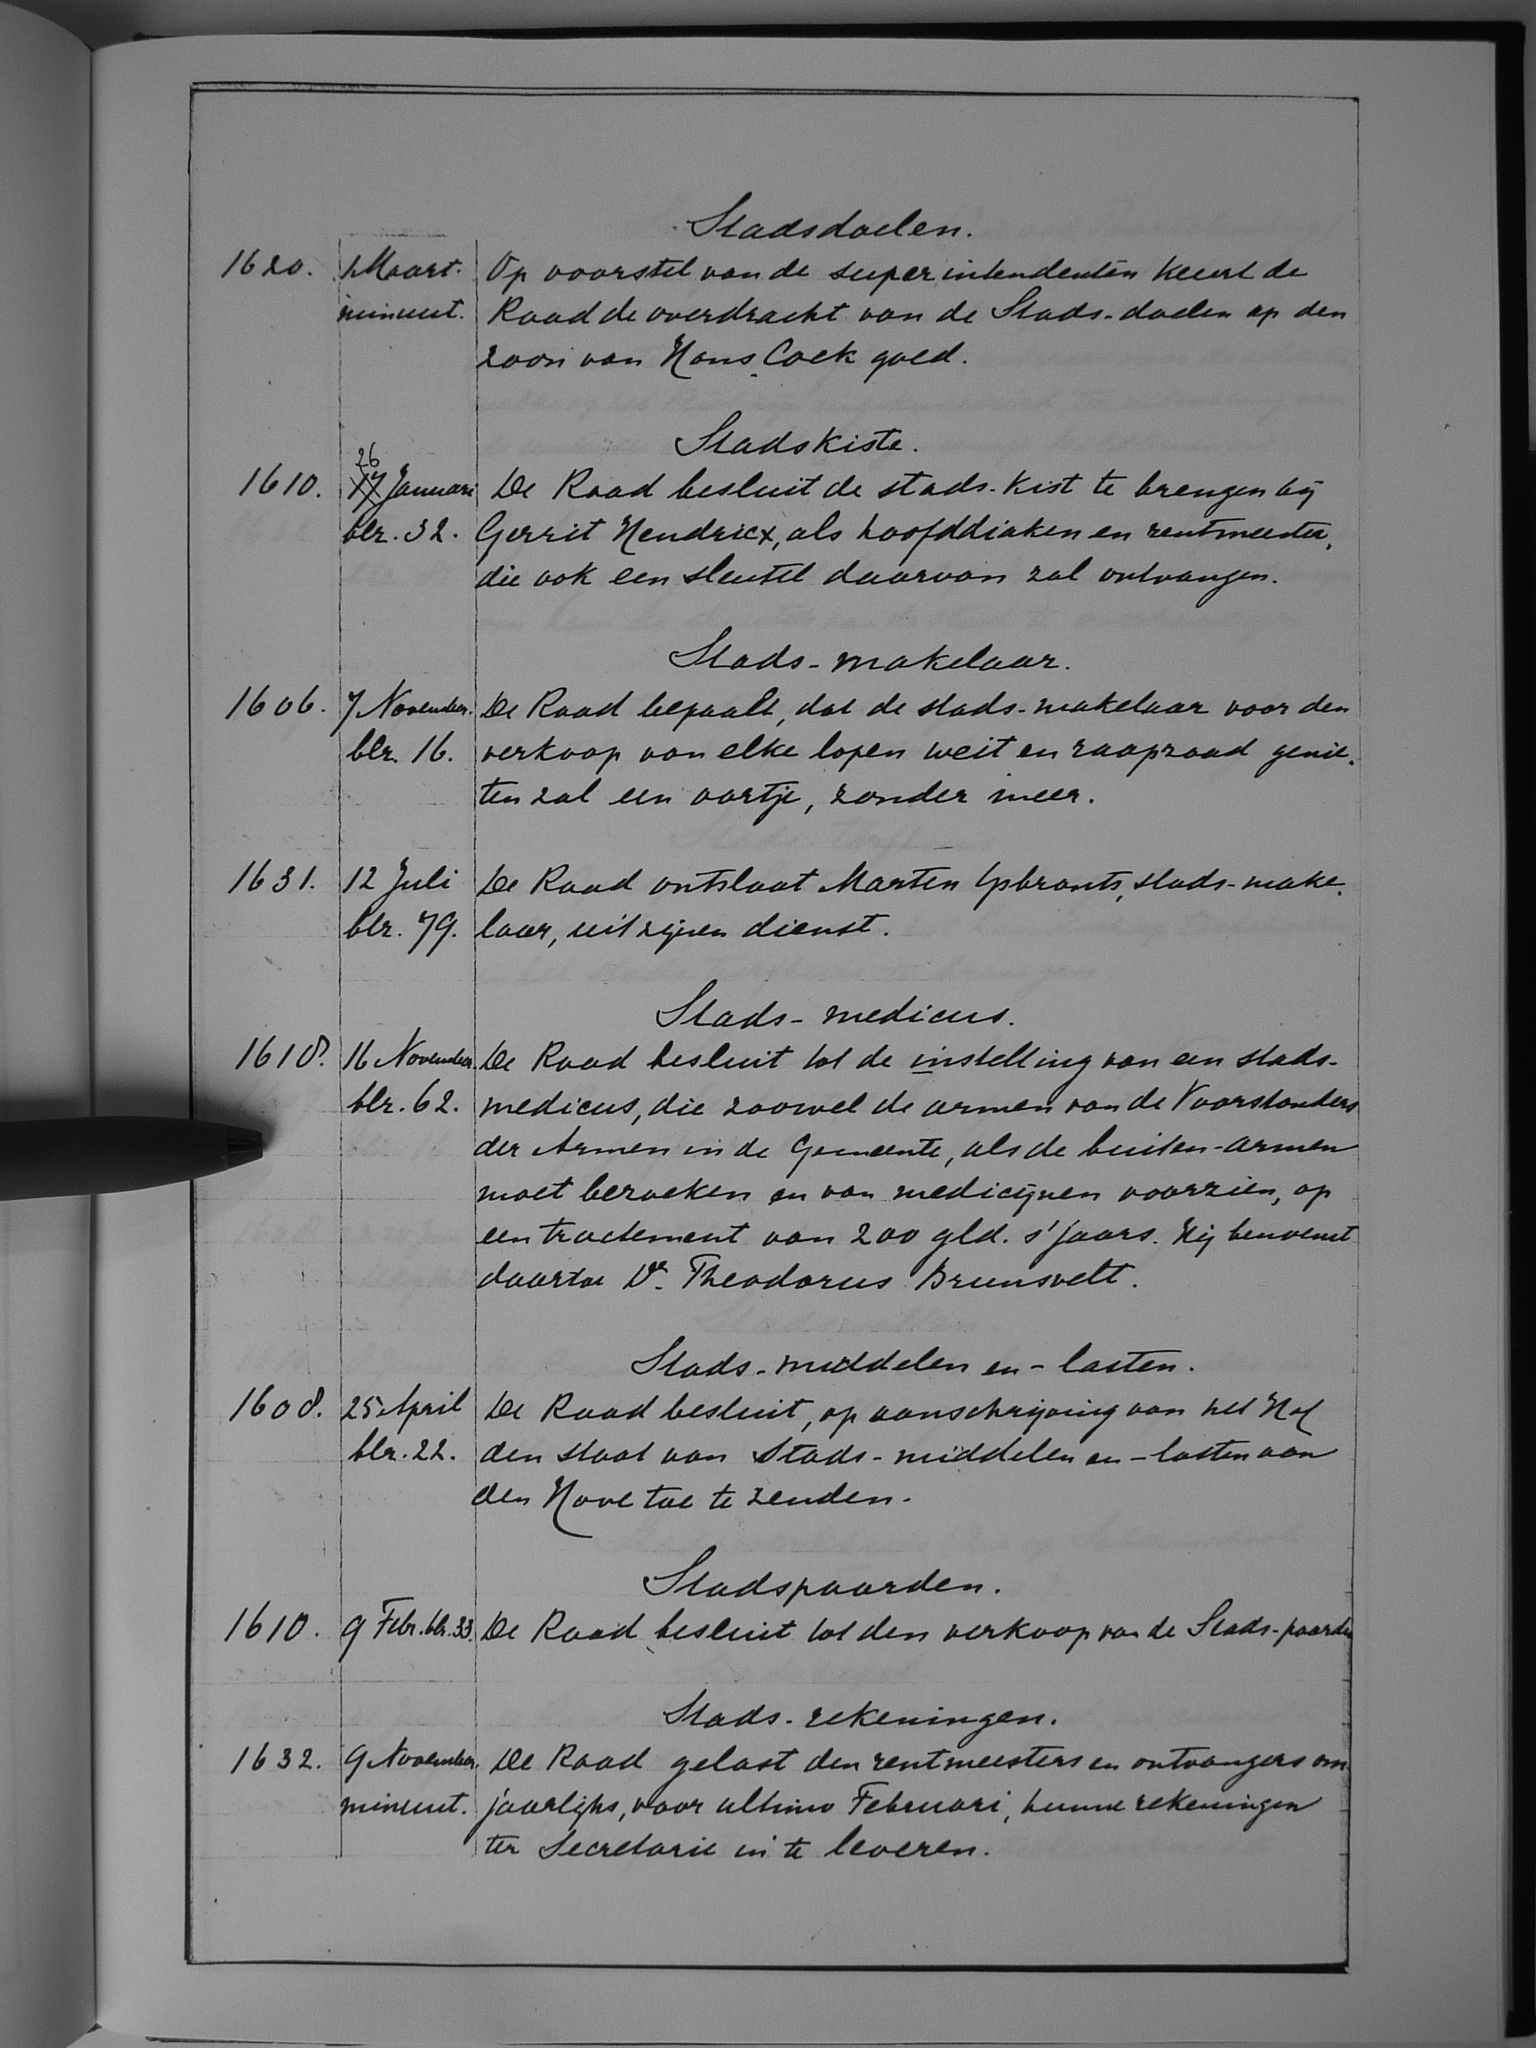 Stadsdoelen.
1620. 1 Maart. Op voorstel van de superintendenten keurt de
minuut. Raad de overdracht van de Stads-doelen op den
zoon van Hans Coek goed.
Stadskiste.
26
1610. 17 Januari De Raad besluit de stads-kist te brengen bij
blz. 32. Gerrit Hendricx, als hoofddiaken en rentmeester,
die ook een sleutel daarvan zal ontvangen.
Stads-makelaar.
1606. 7 November. De Raad bepaalt, dat de stads-makelaar voor den
blz. 16. verkoop van elke lopen weit en raapzaad genie-
ten zal een oortje, zonder meer.
1631. 12 Juli De Raad ontslaat Marten Ysbrants, stads-make-
blz. 79. laar, uit zijnen dienst.
Stads-medicus.
1618. 16 November De Raad besluit tot de instelling van een stads-
blz. 62. medicus, die zoowel de armen van de Voorstanders
der Armen in de Gemeente, als de buiten-armen
moet bezoeken en van medicijnen voorzien, op
een tractement van 200 gld. s'jaars. Hij benoemt
daartoe Dr. Theodorus Brunsvelt.
Stads-middelen en -lasten.
1608. 25 April De Raad besluit, op aanschrijving van het Hof
blz. 22. den staat van Stads-middelen en -lasten aan
den Hove toe te zenden.
Stadspaarden.
1610. 9 Febr. blz. 33. De Raad besluit tot den verkoop van de Stads-paarden
Stads-rekeningen.
1632. 9 November. De Raad gelast den rentmeesters en ontvangers om
minuut. jaarlijks, voor ultimo Februari, hunne rekeningen
ter Secretarie in te leveren.